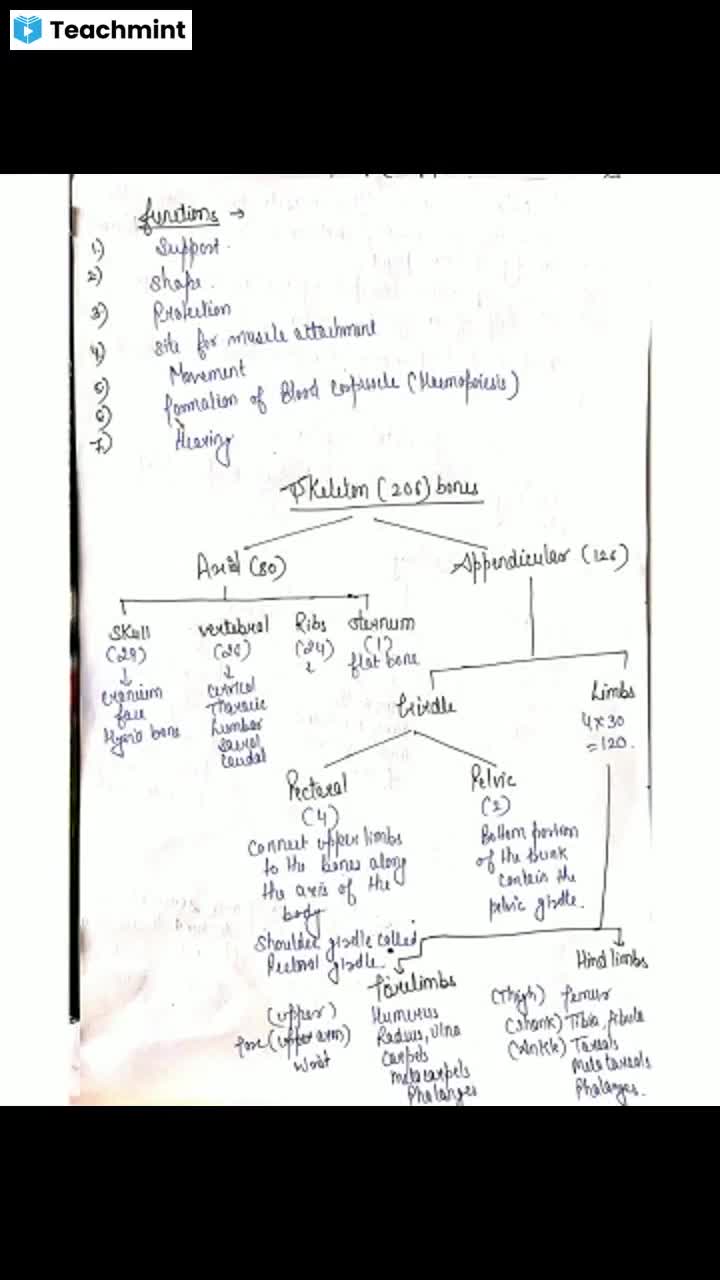 Teachmint
functions →
1) Support.
2) Shape.
3) Protection
4) Site for muscle attachment
5) Movement
6) formation of Blood corpuscle (Haemopoiesis)
7) Hearing
Skeleton (206) bones
Axial (80)
Appendicular (126)
Skull
(29)
↓
cranium
face
Hyoid bone
vertebral
(26)
↓
cervical
Thoracic
Lumbar
sacral
caudal
Ribs
(24)
sternum
(1)
flat bone
Girdle
Limbs
4x30
=120.
Pectoral
(4)
Connect upper limbs
to the bones along
the axis of the
body
Shoulder girdle called
Pectoral girdle.
Pelvic
(2)
Bottom portion
of the trunk
contain the
pelvic girdle.
forelimbs
(upper) Humerus
fore (upper arm) Radius, Ulna
Wrist Carpels
Metacarpels
Phalanges
Hind limbs
(Thigh) femur
(shank) Tibia, fibula
(Ankle) Tarsals
Metatarsals
Phalanges.